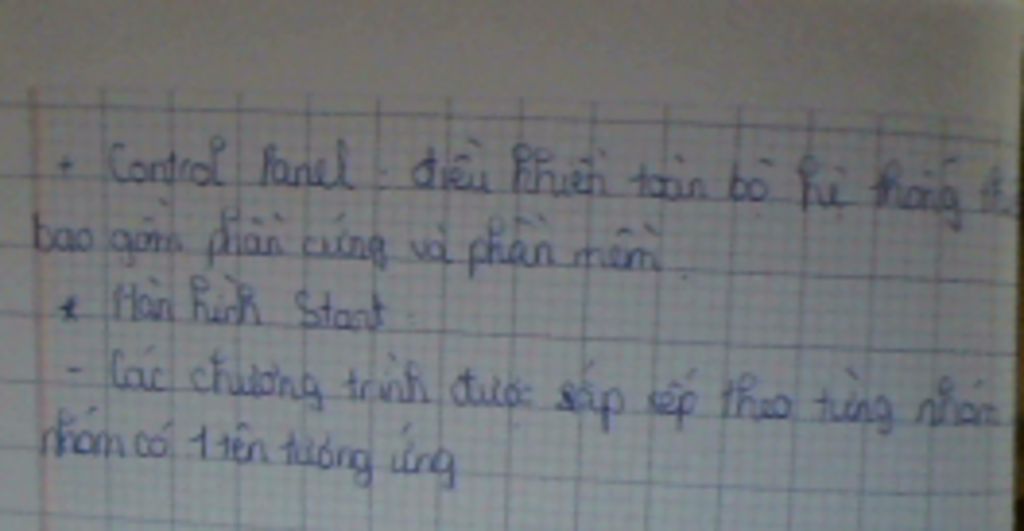 + Control Panel : điều khiển toàn bộ hệ thống
bao gồm phần cứng và phần mềm.
* Màn hình Start
- Các chương trình được sắp xếp theo từng nhóm
nhóm có 1 tên tương ứng